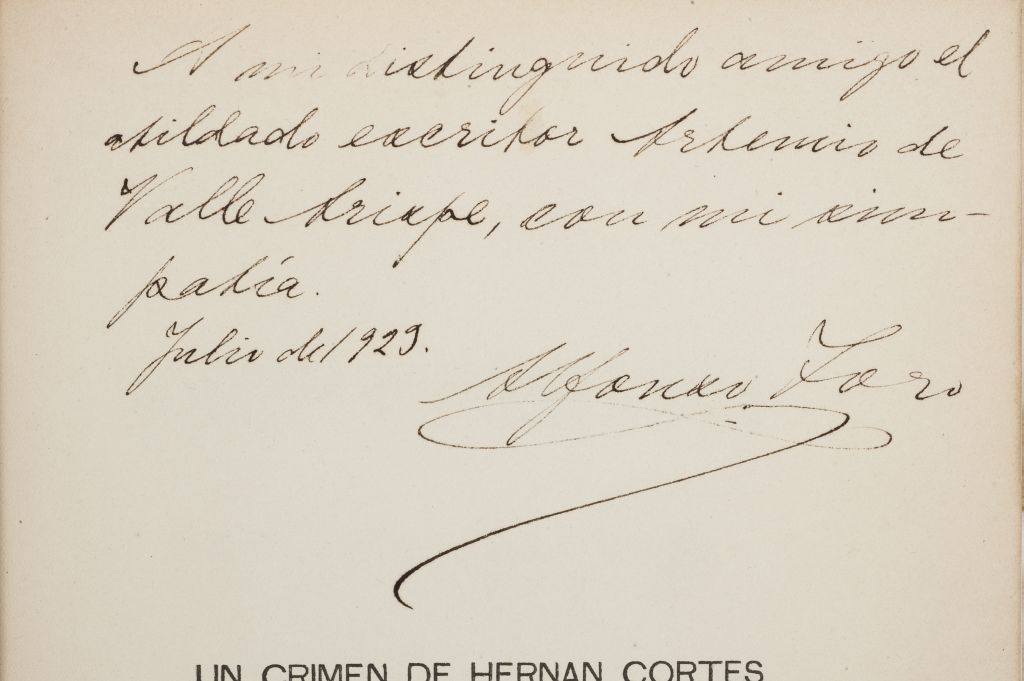 A mi distinguido amigo el
atildado escritor Artemio de
Valle Arispe, con mi sim-
patía.
Julio del 1923.
Alfonso Toro
UN CRIMEN DE HERNAN CORTES